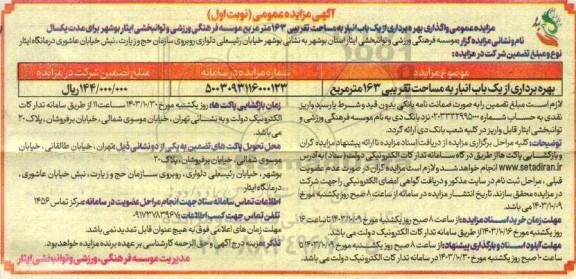 آگهی مزایده عمومی (نوبت اول)
مزایده عمومی واگذاری بهره برداری از یک باب انبار به مساحت تقریبی ۱۶۳ متر مربع موسسه فرهنگی ورزشی و توانبخشی ایثار بوشهر برای مدت یکسال
نام و نشانی مزایده گزار: موسسه فرهنگی ورزشی و توانبخشی ایثار استان بوشهر به نشانی بوشهر خیابان رئیسعلی دلواری روبروی سازمان حج و زیارت، نبش خیابان عاشوری درمانگاه ایثار
نوع و مبلغ تضمین شرکت در مزایده:
موضوع مزایده
شماره مزایده در سامانه
مبلغ تضمین شرکت در مزایده
بهره برداری از یک باب انبار به مساحت تقریبی ۱۶۳ مترمربع
۵۰۰۳۰۹۳۱۱۶۰۰۰۱۲۳
۱۴۴/۰۰۰/۰۰۰ ریال
لازم است مبلغ تضمین را به صورت ضمانت نامه بانکی بدون قید و شرط یا رسید واریز
نقدی به حساب شماره نزد بانک دی به نام موسسه فرهنگی ورزشی و
توانبخشی ایثار قابل واریز در کلیه شعب بانک دی ارائه گردد.
توضیحات: کلیه مراحل برگزاری مزایده از دریافت اسناد مزایده تا ارائه پیشنهاد مزایده گران
و بازگشایی پاکت ها از طریق درگاه سامانه تدارکات الکترونیکی دولت (ستاد) به آدرس
www.setadiran.ir انجام خواهد شد و لازم است مزایده گران در صورت عدم عضویت
قبلی، مراحل ثبت نام در سایت مذکور و دریافت گواهی امضای الکترونیکی را جهت شرکت
در مزایده محقق سازند. تاریخ انتشار مزایده در سامانه از ساعت ۸ صبح روز یکشنبه مورخ
۱۴۰۳/۱۰/۰۹ می باشد.
مهلت زمان خرید اسناد مزایده: از ساعت ۸ صبح روز یکشنبه مورخ ۱۴۰۳/۱۰/۰۹ تا ساعت ۱۶
روز یکشنبه مورخ ۱۴۰۳/۱۰/۱۶ از طریق سامانه تدارکات الکترونیک دولت می باشد.
مهلت آپلود اسناد و بارگذاری پیشنهاد: از ساعت ۸ صبح روز یکشنبه مورخ ۱۴۰۳/۱۰/۰۹ تا
ساعت ۱۰ صبح روز یکشنبه مورخ ۱۴۰۳/۱۰/۳۰ در سامانه تدارکات الکترونیک دولت می باشد.
زمان بازگشایی پاکت ها: روز یکشنبه مورخ ۱۴۰۳/۱۰/۳۰ ساعت ۱۱ از طریق سامانه تدارکات
الکترونیک دولت و به نشستانی تهران، خیابان موسوی شمالی، خیابان پرفروشان، پلاک ۲۰
می باشد.
محل تحویل پاکت های تضمین به یکی از دو نشانی ذیل: تهران، خیابان طالقانی، خیابان
موسوی شمالی، خیابان پرفروشان، پلاک ۲۰
بوشهر، خیابان رئیسعلی دلواری، روبروی سازمان حج و زیارت، نبش خیابان عاشوری،
درمانگاه ایثار
اطلاعات تماس سامانه ستاد جهت انجام مراحل عضویت در سامانه: مرکز تماس ۱۴۵۶
تلفن تماس جهت کسب اطلاعات:
مهلت زمان های اعلامی فوق به هیچ عنوان قابل تمدید نمی باشد.
تذکر: هزینه درج آگهی و حق الزحمه کارشناسی بر عهده برنده مزایده خواهد بود.
مدیریت موسسه فرهنگی، ورزشی و توانبخشی ایثار